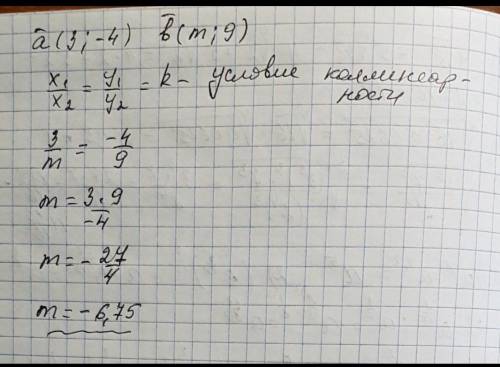 a̅(3;-4) b̅(m;9)
x₁/x₂ = y₁/y₂ = k - условие коллинеар-
ности
3/m = -4/9
m = 3·9/-4
m = - 27/4
m = - 6,75